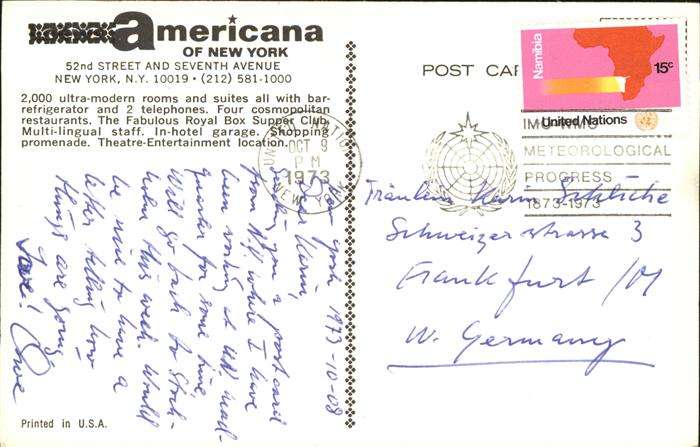 americana
OF NEW YORK
52nd STREET AND SEVENTH AVENUE
NEW YORK, N.Y. 10019 • (212) 581-1000
2,000 ultra-modern rooms and suites all with bar-
refrigerator and 2 telephones. Four cosmopolitan
restaurants. The Fabulous Royal Box Supper Club.
Multi-lingual staff. In-hotel garage. Shopping
promenade. Theatre-Entertainment location.
New York 1973-10-08
Dear Karin,
Sending you a postcard
from N.Y. where I have
been working at UN head-
quarter for some time.
Will go back to Stock-
holm this week. Would
be nice to have a
letter telling how
things are going.
Love! Ove
Printed in U.S.A.
POST CAR
Namibia
15c
United Nations
UNITED NATIONS
OCT 9
PM
1973
NEW YORK
IMO-WMO
METEOROLOGICAL
PROGRESS
1873-1973
Fräulein Karin
Schweizerstrasse 3
Frankfurt/M
W. Germany